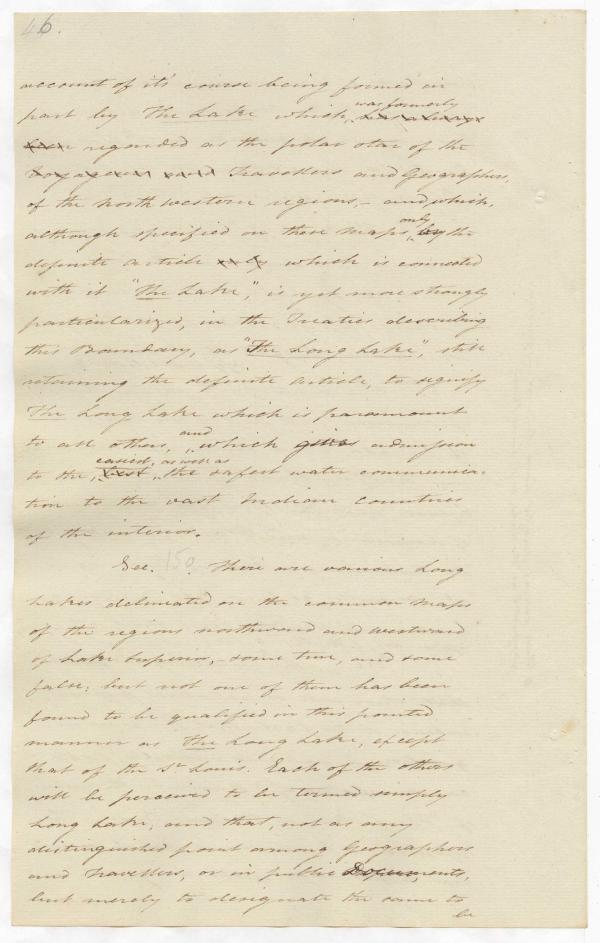 46.
account of it's course being formed in
part by The Lake which, was formerly has always
been regarded as the polar star of the
Voyageurs and Travellers and Geographers,
of the north western regions,- and which,
although specified on these maps, only by the
definite article only which is connected
with it "The Lake", is yet more strongly
particularized, in the Treaties describing
this Boundary, as "The Long Lake", still
retaining the definite article, to signify
The Long Lake which is paramount
to all others, and which gives admission
to the, easiest, as well as best, the safest water communica-
tion to the vast Indian Countries
of the interior.
Sec. 150. There are various Long
Lakes delineated on the common maps
of the regions northward and westward
of Lake Superior,- some true, and some
false; but not one of them has been
found to be qualified in this pointed
manner as The Long Lake, except
that of the St Louis. Each of the others
will be perceived to be termed simply
Long Lake, and that, not as any
distinguished point among Geographers
and Travellers, or in public Documents,
but merely to designate the same to
be